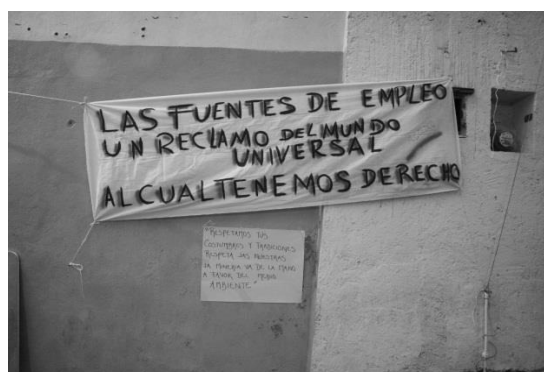 LAS FUENTES DE EMPLEO
UN RECLAMO DEL MUNDO
UNIVERSAL
AL CUAL TENEMOS DERECHO
"RESPETAMOS TUS
COSTUMBRES Y TRADICIONES
RESPETA LAS NUESTRAS
LA MINERIA VA DE LA MANO
A FAVOR DEL MEDIO
AMBIENTE"